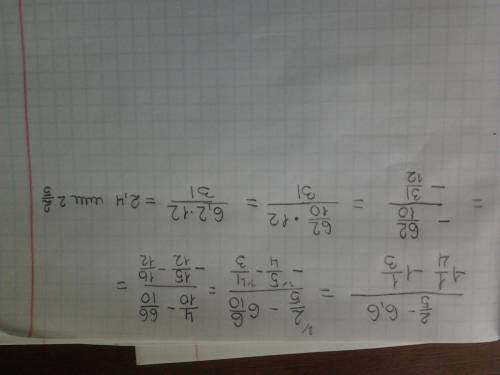 \frac{\frac{2}{5} - 6,6}{-1\frac{1}{4} - 1\frac{1}{3}} = \frac{\frac{2}{5} - 6\frac{6}{10}}{-\frac{5}{4} - \frac{4}{3}} = \frac{\frac{4}{10} - \frac{66}{10}}{-\frac{15}{12} - \frac{16}{12}} =
= \frac{-\frac{62}{10}}{-\frac{31}{12}} = \frac{\frac{62}{10} \cdot 12}{31} = \frac{6,2 \cdot 12}{31} = 2,4 или 2\frac{2}{5}